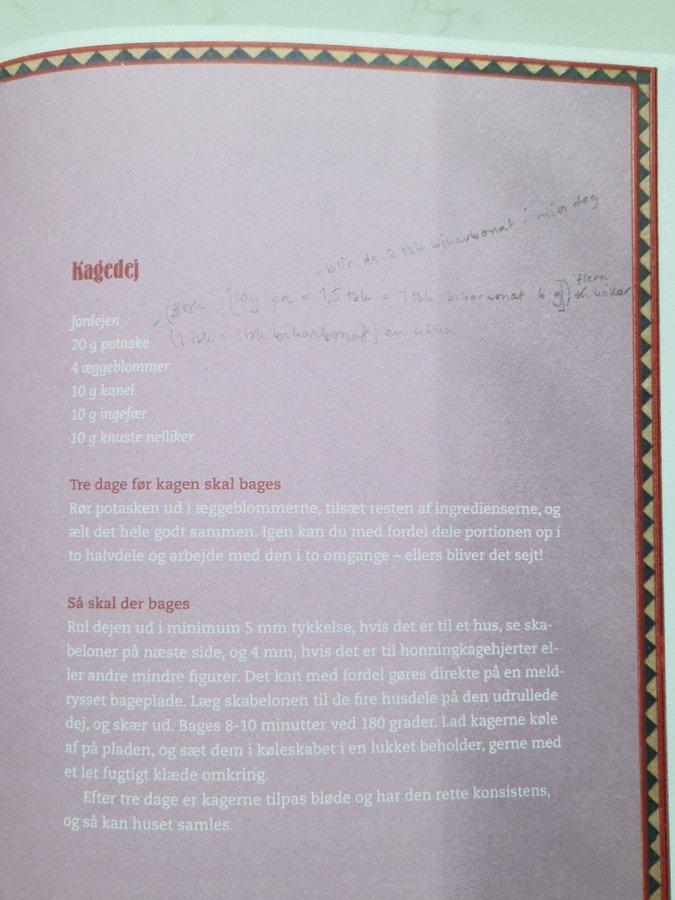 - blir de 2 tsk bikarbonat i min deg
Kagedej
(3 tsk [10 g pa = 1,5 tsk = 1 tsk bikarbonat 6 g]) flera
fordejen
(1 tsk = 3 tsk bikarbonat) en
20 g potaske
4 æggeblommer
10 g kanel
10 g ingefær
10 g knuste nelliker
Tre dage før kagen skal bages
Rør potasken ud i æggeblommerne, tilsæt resten af ingredienserne, og
ælt det hele godt sammen. Igen kan du med fordel dele portionen op i
to halvdele og arbejde med den i to omgange – ellers bliver det sejt!
Så skal der bages
Rul dejen ud i minimum 5 mm tykkelse, hvis det er til et hus, se ska-
beloner på næste side, og 4 mm, hvis det er til honningkagehjerter el-
ler andre mindre figurer. Det kan med fordel gøres direkte på en meld-
rysset bageplade. Læg skabelonen til de fire husdele på den udrullede
dej, og skær ud. Bages 8-10 minutter ved 180 grader. Lad kagerne køle
af på pladen, og sæt dem i køleskabet i en lukket beholder, gerne med
et let fugtigt klæde omkring.
Efter tre dage er kagerne tilpas bløde og har den rette konsistens,
og så kan huset samles.